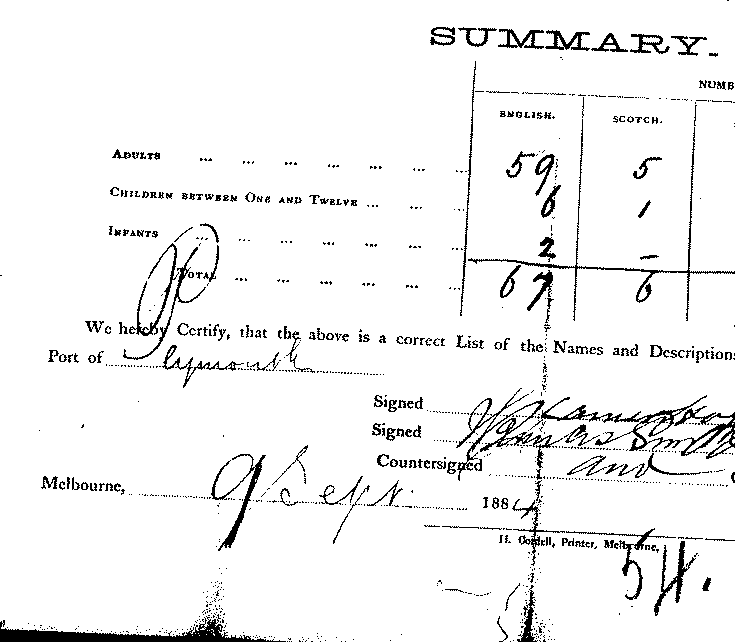 SUMMARY.
NUMB
ENGLISH. SCOTCH.
ADULTS ... ... ... ... ... ... ... 59 5
CHILDREN BETWEEN ONE AND TWELVE ... ... ... 6 1
INFANTS ... ... ... ... ... ... ... 2 –
TOTAL ... ... ... ... ... ... 67 6
We hereby Certify, that the above is a correct List of the Names and Descriptions
Port of Plymouth
Signed
Signed
Countersigned and
Melbourne, 9 Sept. 1884
H. Cordell, Printer, Melbourne.
54.